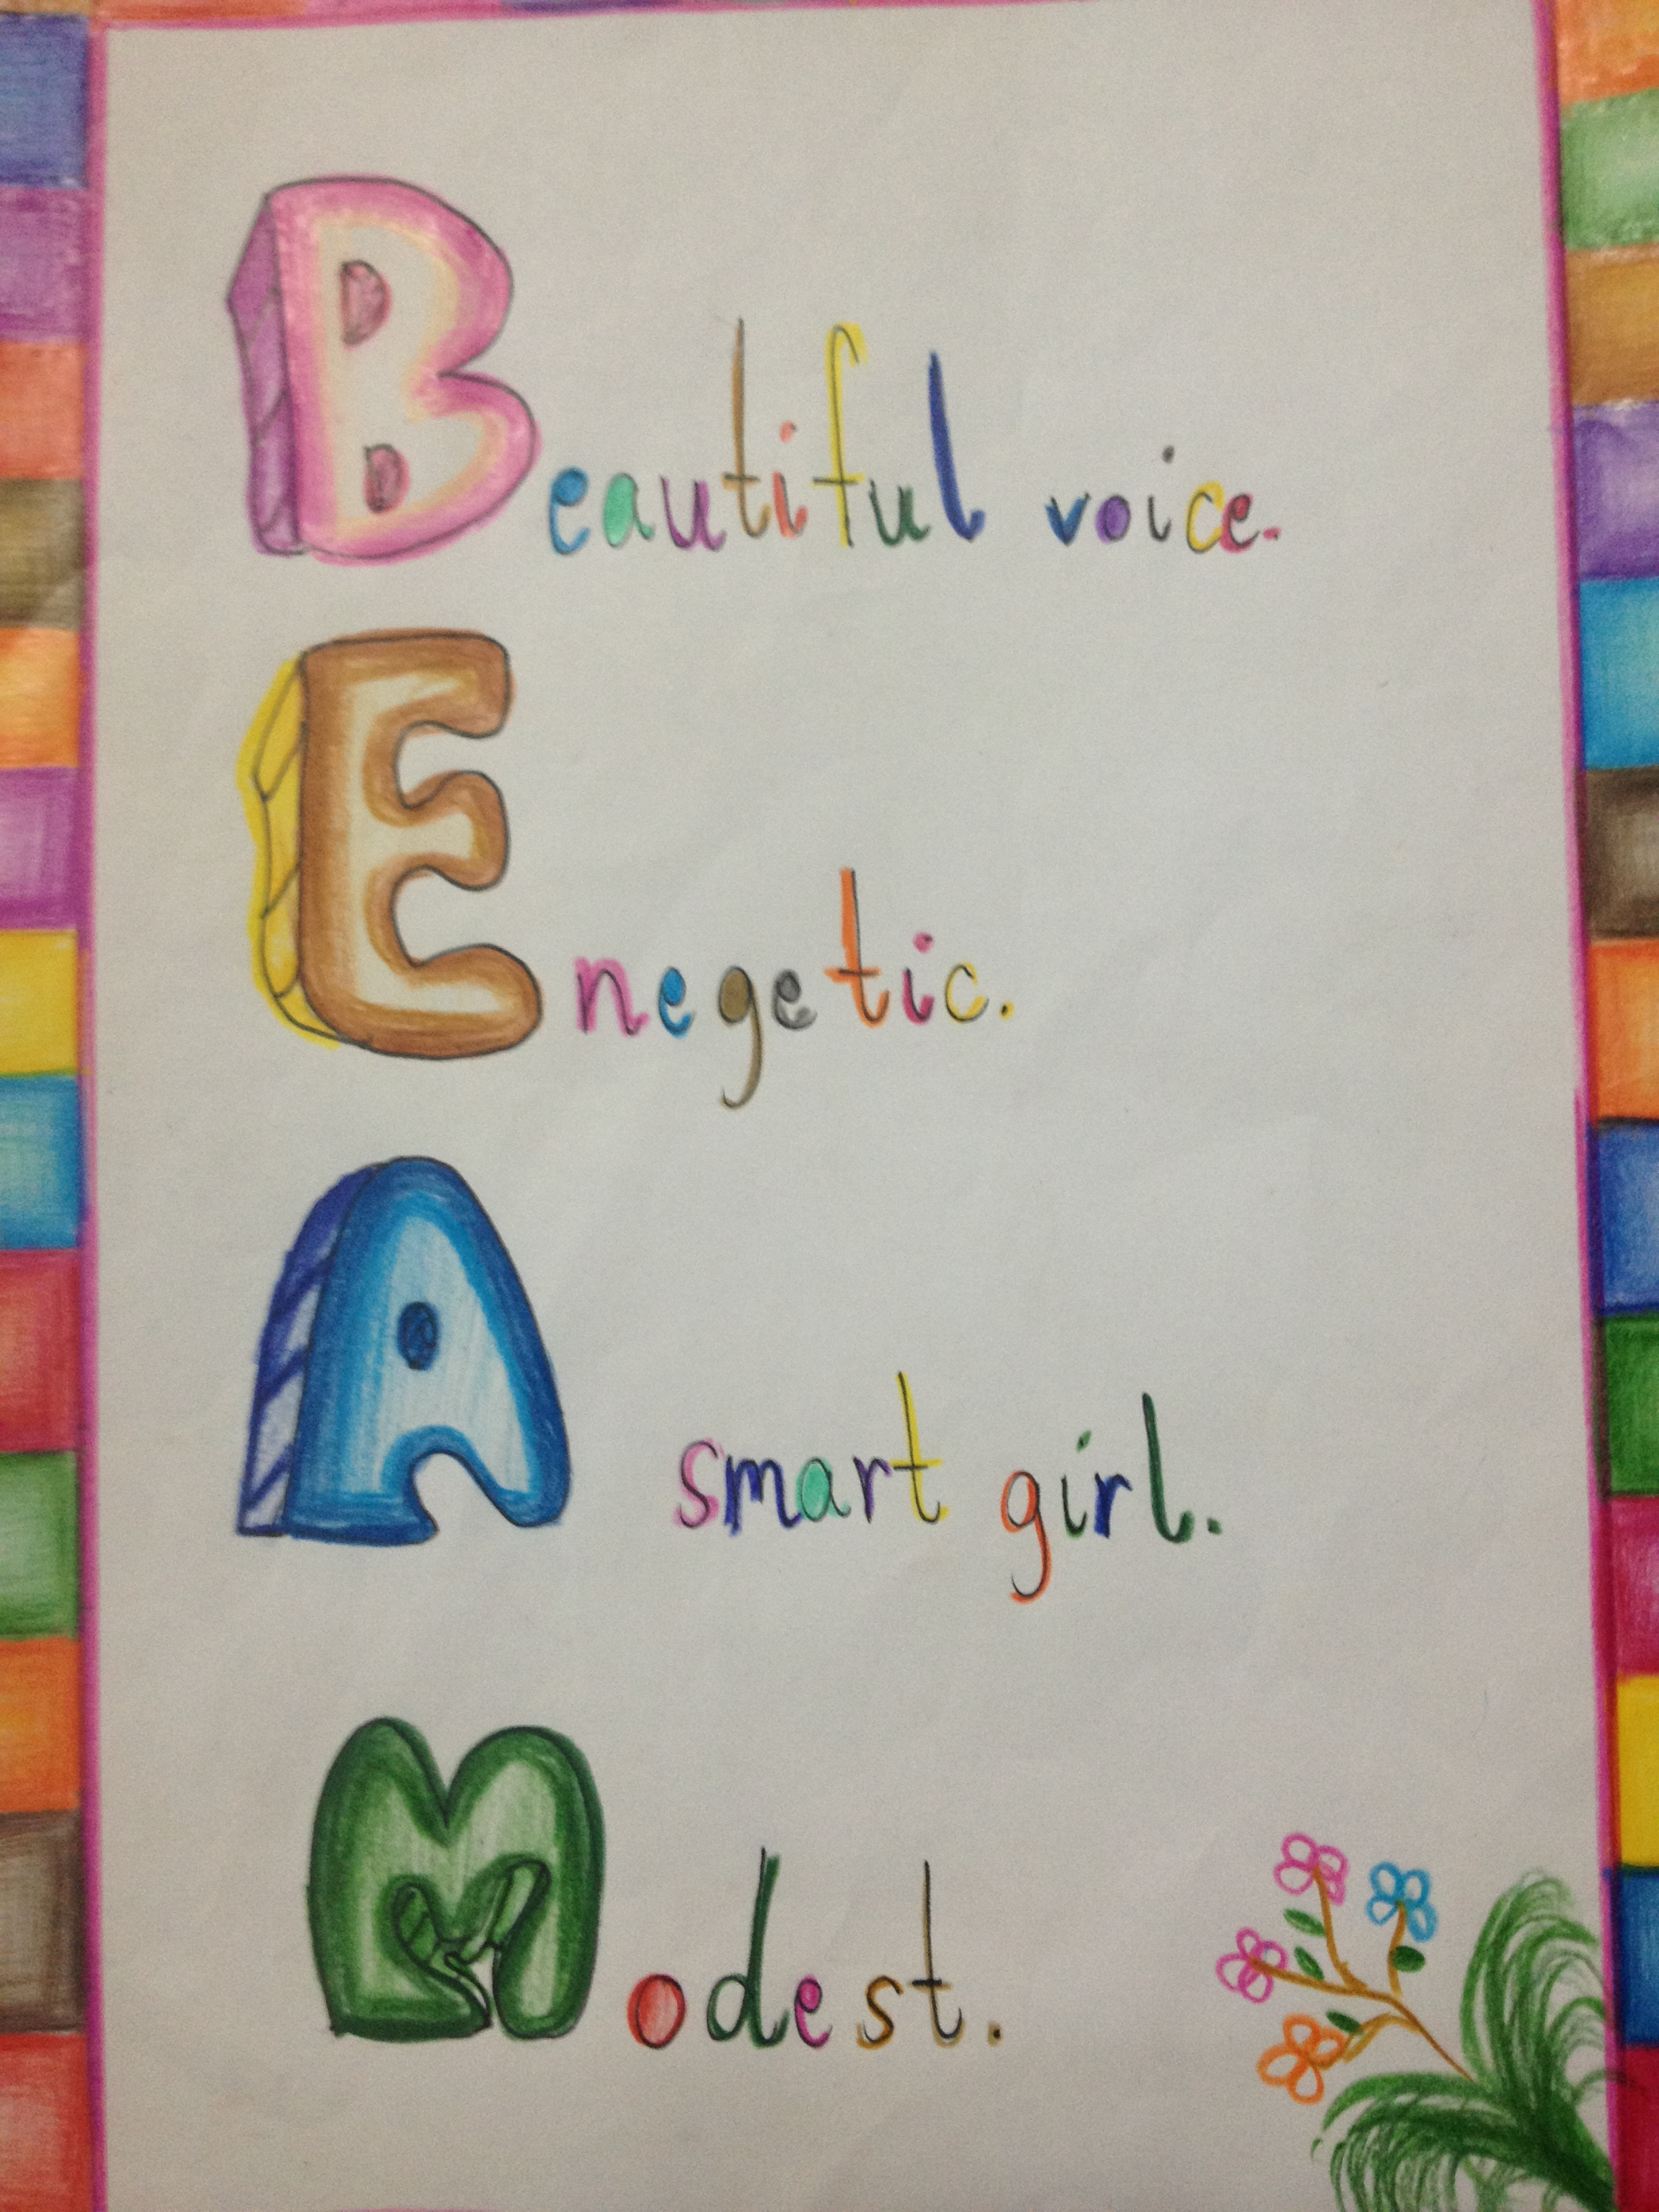 Beautiful voice.
Enegetic.
A smart girl.
Modest.